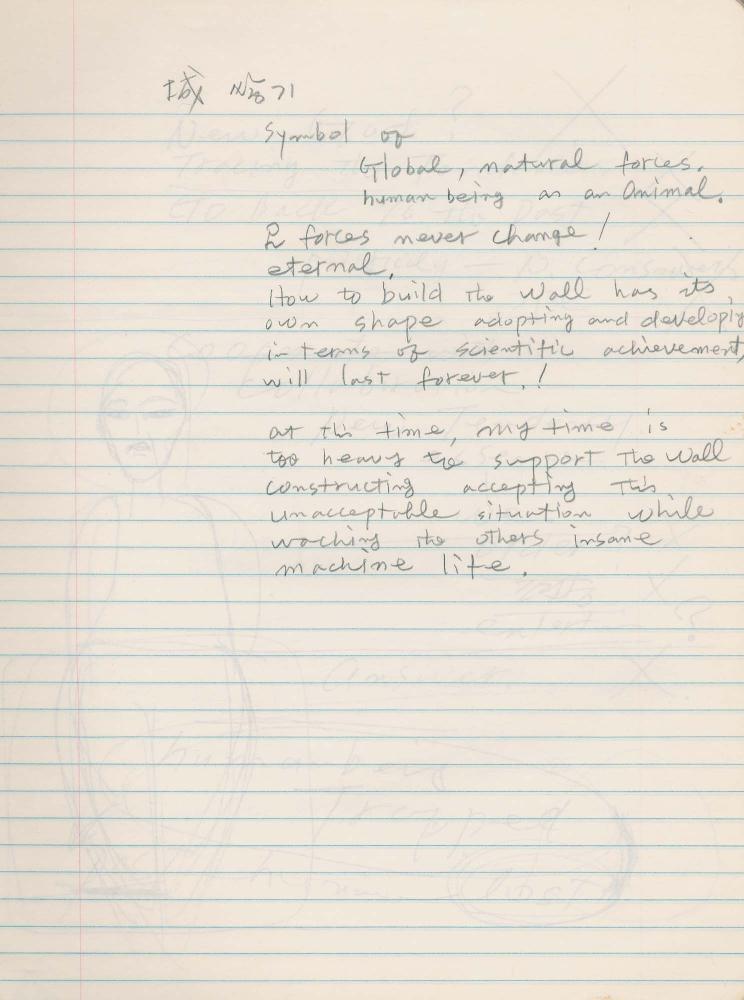 城 쌓기
Symbol of
Global, natural forces.
human being as an Animal.
2 forces never change!
eternal,
How to build the Wall has its,
own shape adopting and developing
in terms of scientific achievement,
will last forever.!
at this time, my time is
too heavy to support the Wall
constructing accepting this
unacceptable situation while
waching the others insane
machine life.